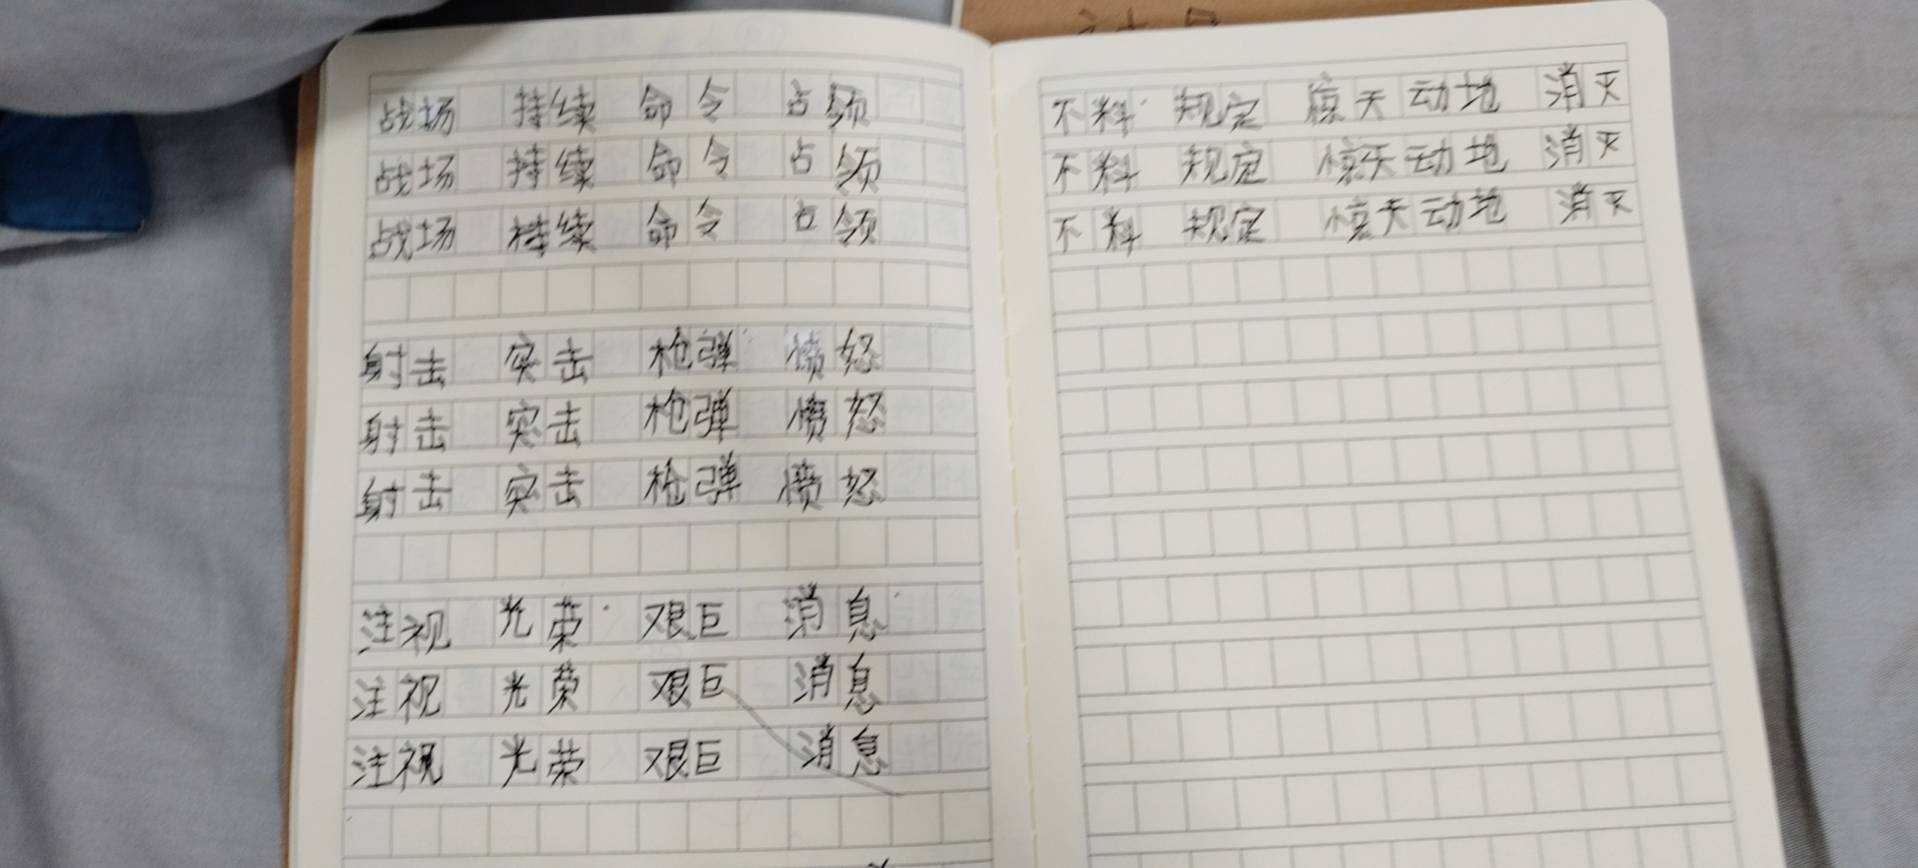 战场 持续 命令 占领
战场 持续 命令 占领
战场 持续 命令 占领
射击 突击 枪弹 愤怒
射击 突击 枪弹 愤怒
射击 突击 枪弹 愤怒
注视 光荣 艰巨 消息
注视 光荣 艰巨 消息
注视 光荣 艰巨 消息
不料 规定 惊天动地 消灭
不料 规定 惊天动地 消灭
不料 规定 惊天动地 消灭